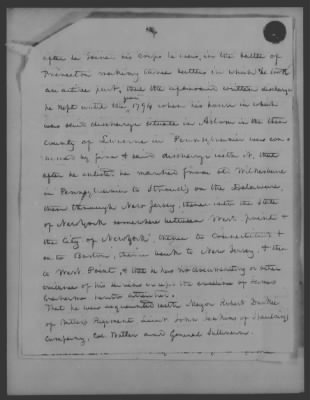 after he joined his corps he was in the battle of
Princeton making three battles in which he took
an active part, that the aforesaid written discharge
he kept until the year 1794 when his house in which
was said discharge situate in Asylum in the then
county of Luzerne in Pennsylvania was con-
sumed by fire & said discharge with it, that
after he enlisted he marched from Wilkesbarre
in Pennsylvania to Strouds on the Delaware,
then through New Jersey, thence into the State
of New York somewhere between West point &
the City of New York, thence to Connecticut &
on to Boston, thence back to New Jersey, & then
to West Point, & that he has no documentary or other
evidence of his services except the evidence of James
hereto
That he was acquainted with Major Robert Durkee
of Butlers Regiment, Lieut. John Jenkins of Spaldings
Company, Col. Butler and General Sullivan.